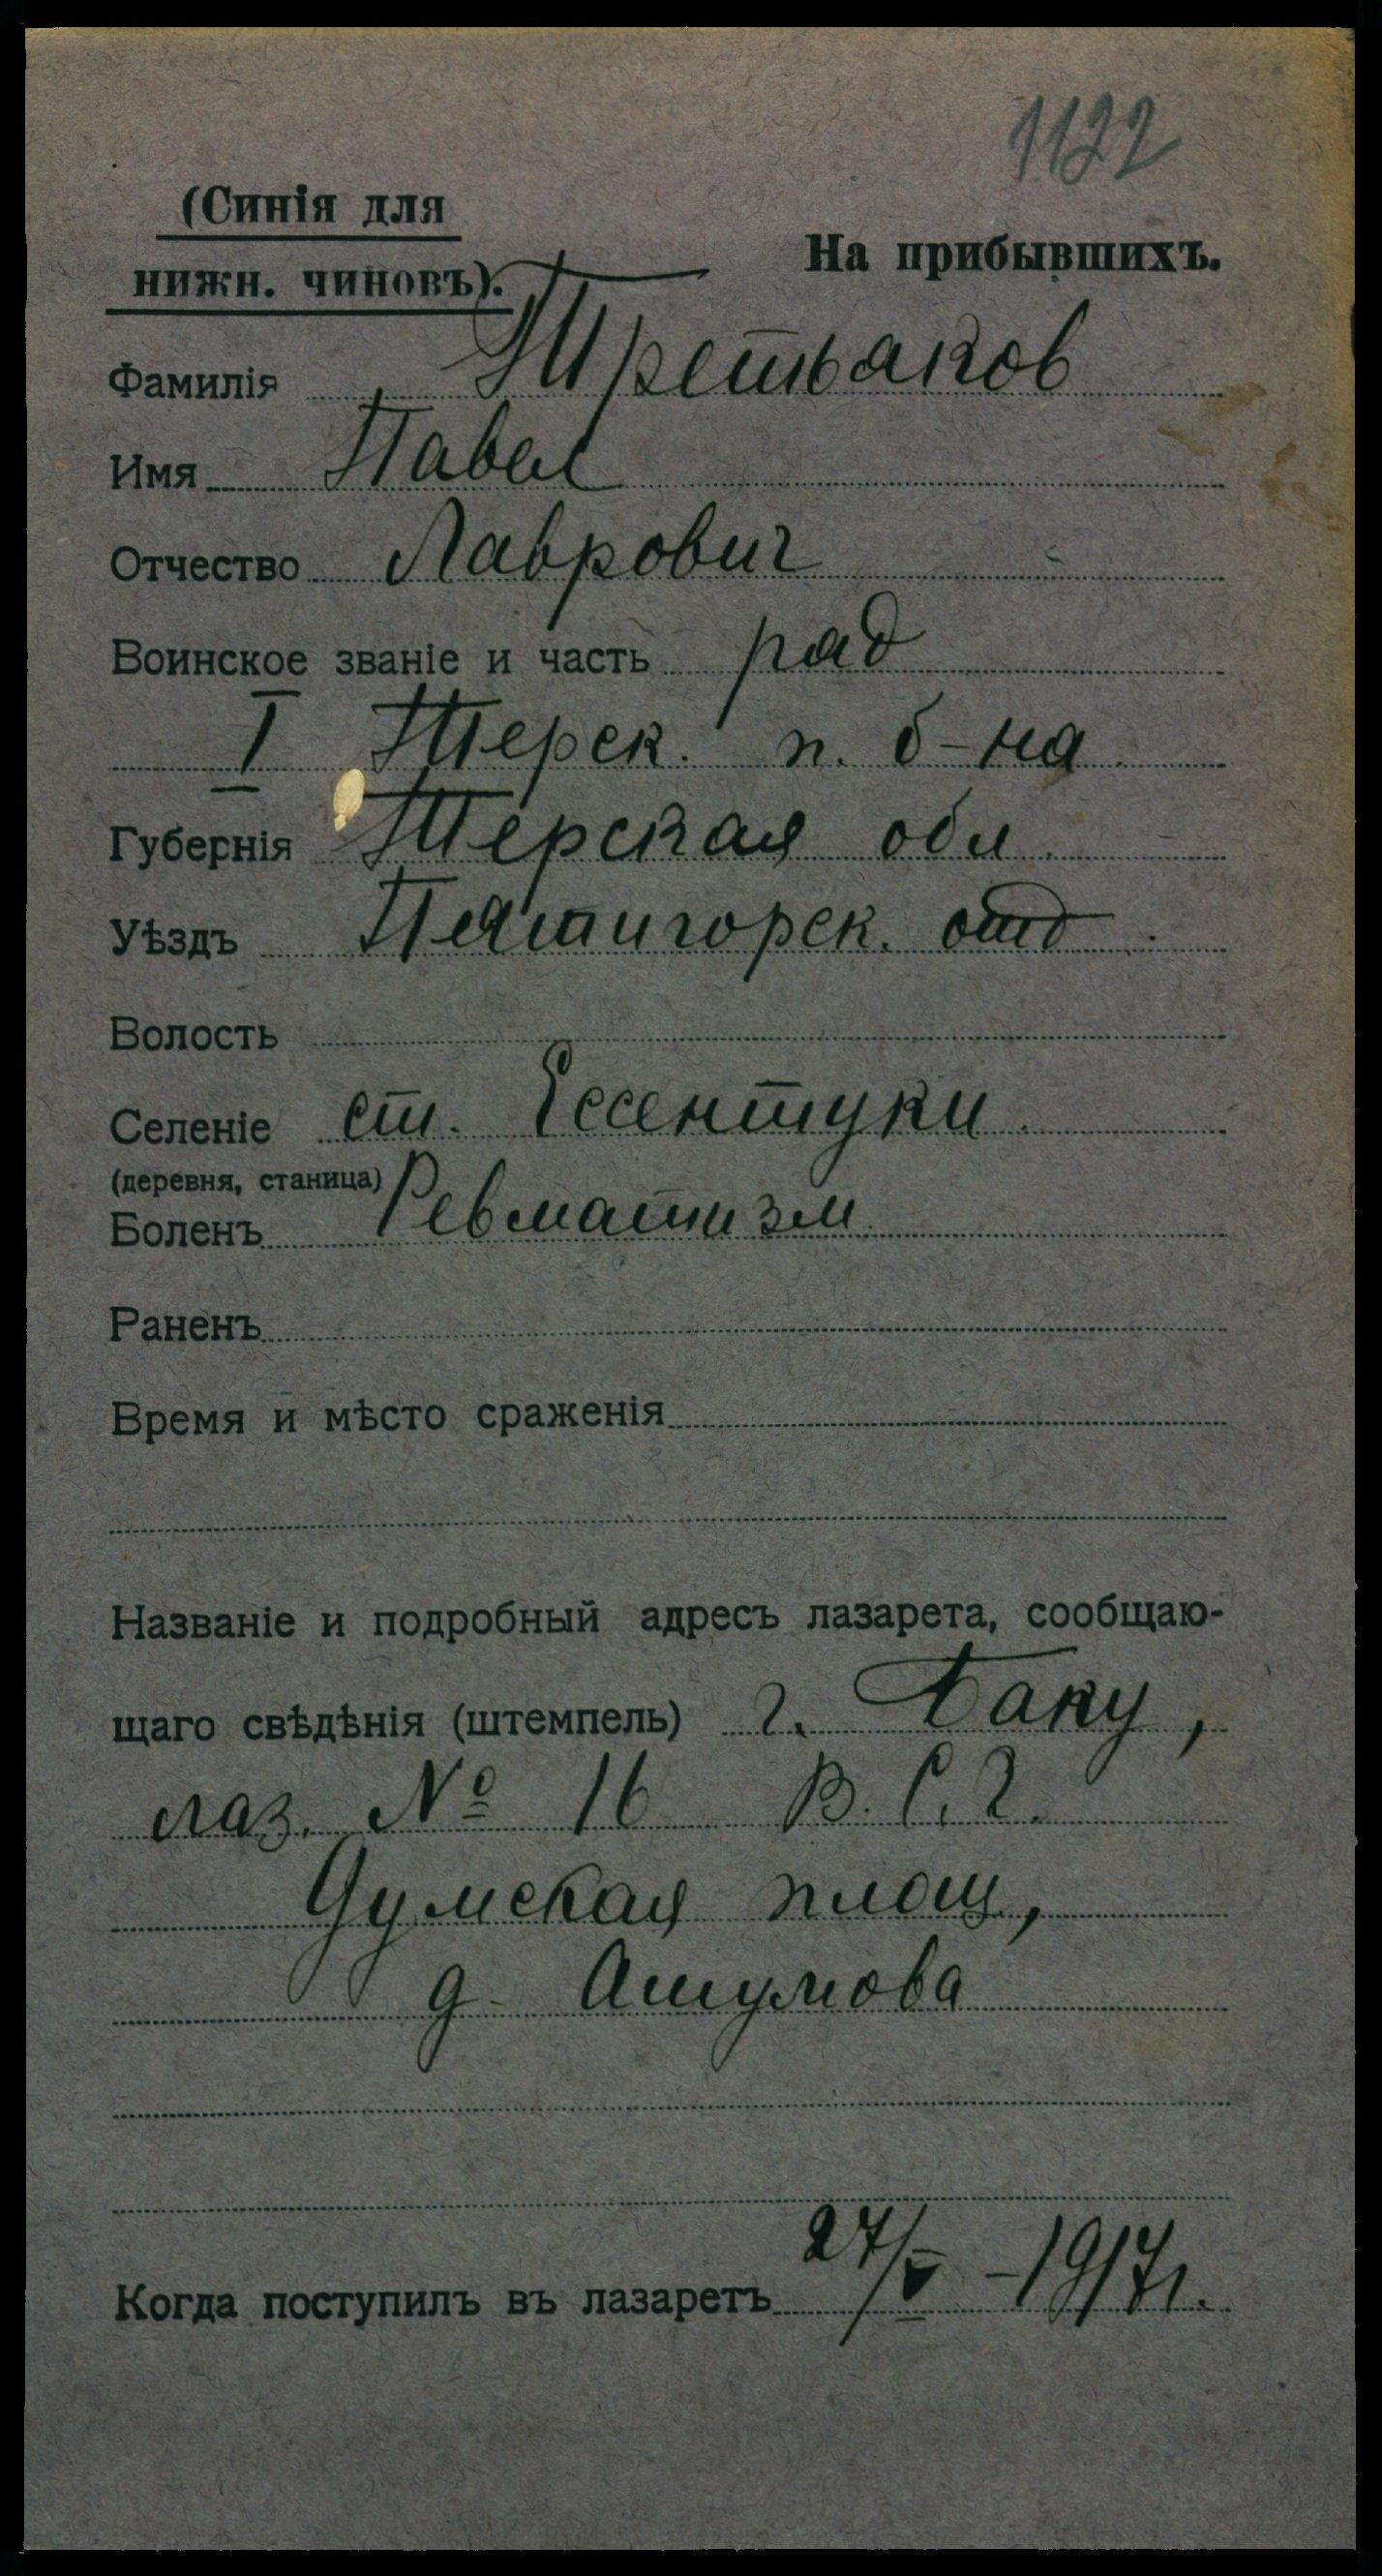 1122
(Синія для
нижн. чиновъ).
На прибывшихъ.
Фамилія Третьаков
Имя Павел
Отчество Лаврович
Воинское званіе и часть рад
I Терск. п. б-на
Губернія Терская обл.
Уѣздъ Пятигорск. отд.
Волость
Селеніе ст. Ессентуки.
(деревня, станица)
Боленъ Ревматизм.
Раненъ
Время и мѣсто сраженія
Названіе и подробный адресъ лазарета, сообщаю-
щаго свѣдѣнія (штемпель) г. Баку,
лаз. № 16 В. С. Г.
Думская площ,
д. Ашумова
Когда поступилъ въ лазаретъ 27/V -1917г.